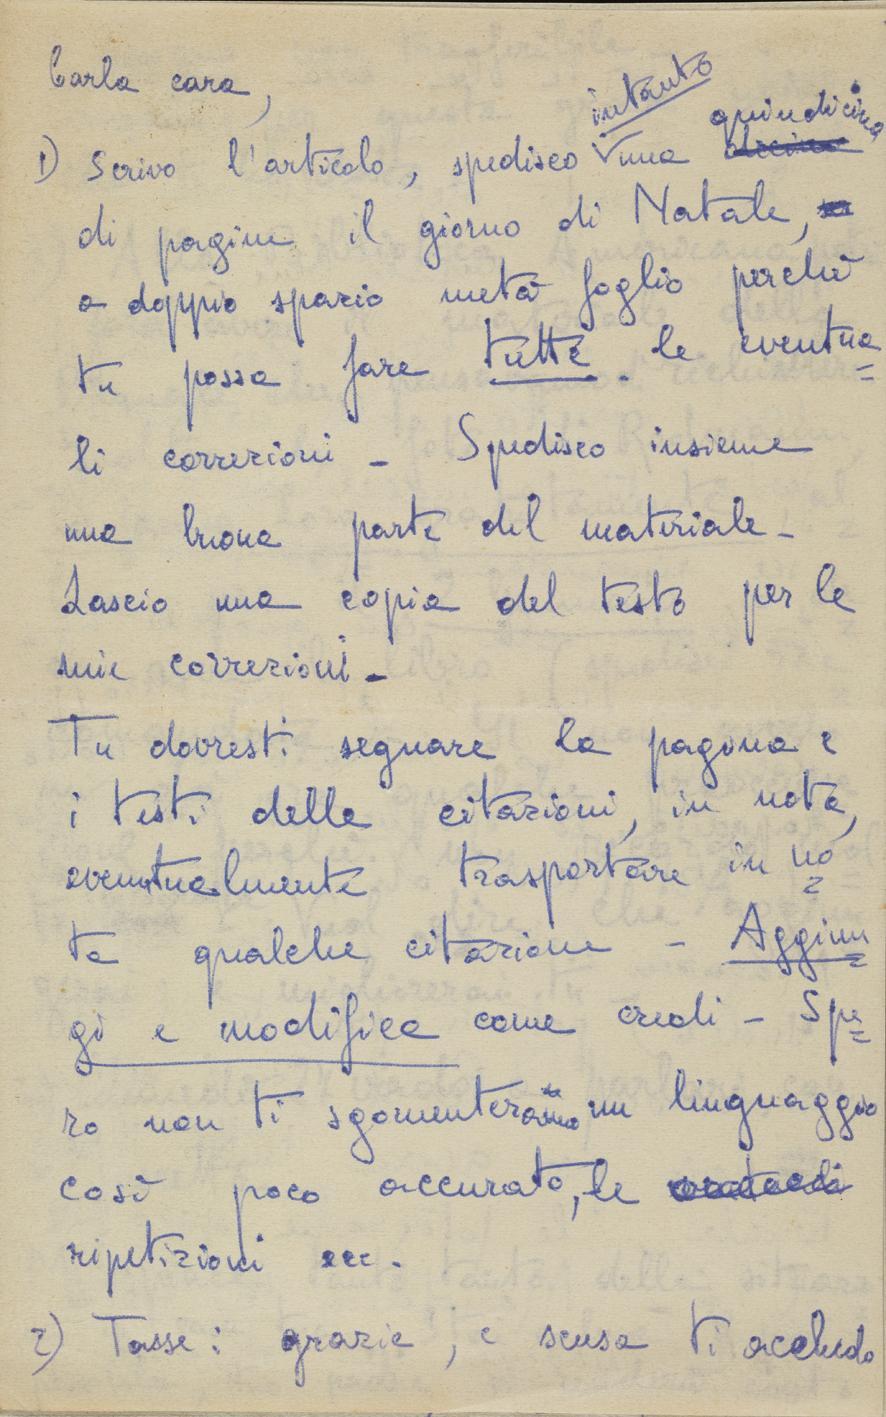 Carla cara,
1) Scrivo l'articolo, spedisco intanto una quindicina
di pagine il giorno di Natale,
a doppio spazio metà foglio perchè
tu possa fare tutte le eventua=
li correzioni - Spedisco insieme
una buona parte del materiale -
Lascio una copia del testo per le
mie correzioni -
Tu dovresti segnare la pagina e
i testi delle citazioni, in nota,
eventualmente trasportare in no=
ta qualche citazione - Aggiun=
gi e modifica come credi - Spe=
ro non ti sgomenteranno un linguaggio
così poco accurato, le
ripetizioni ecc.
2) Tasse: grazie, e scusa ti accludo